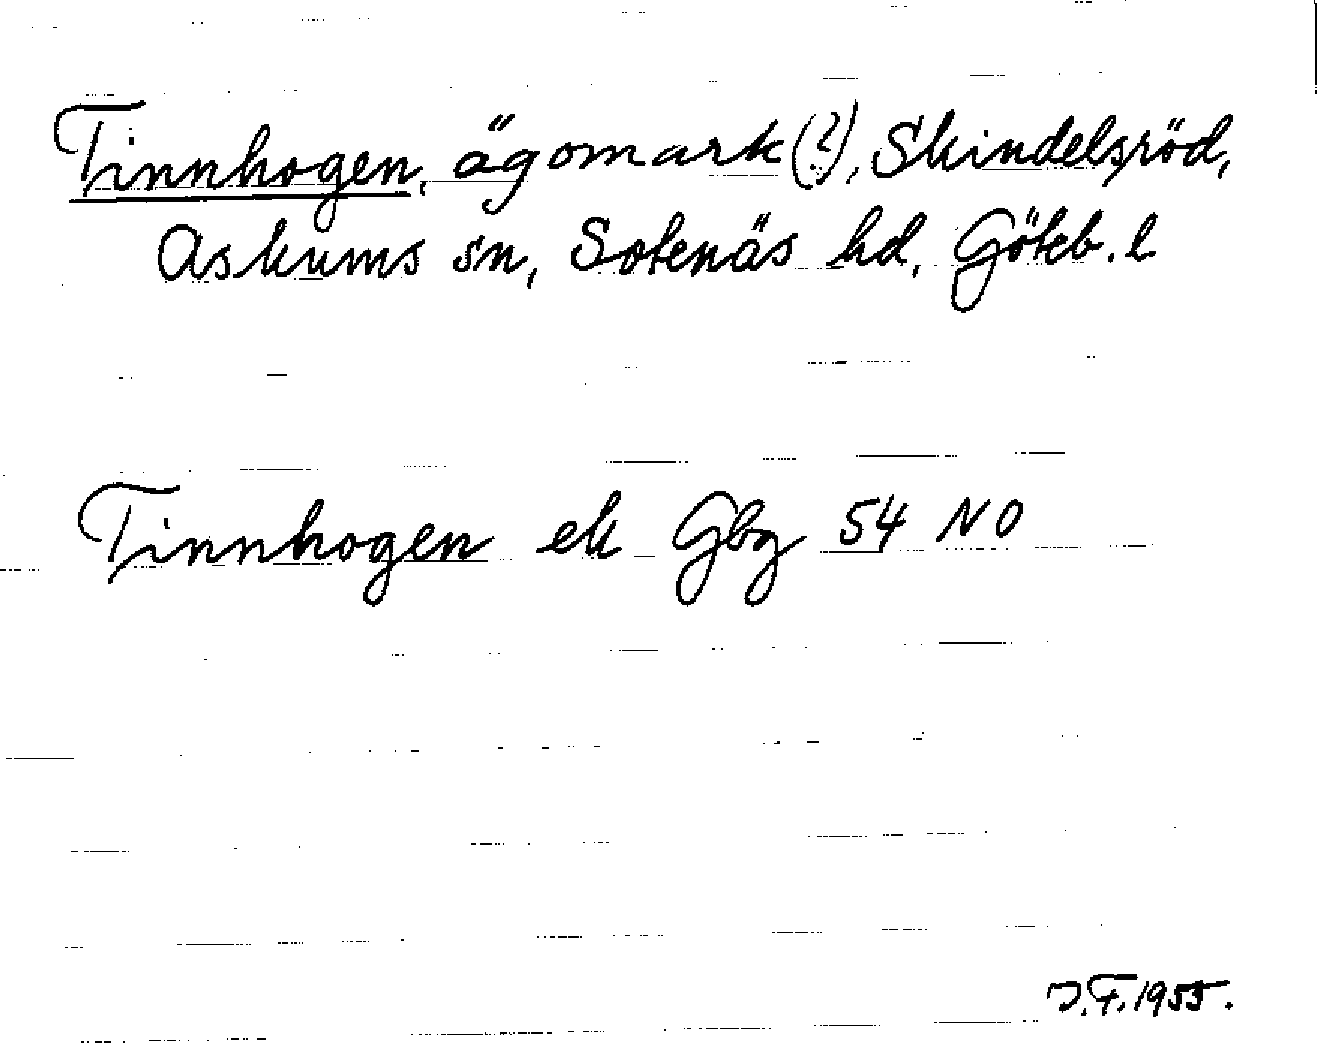 Tinnhogen, ägomark(?), Skindelsröd,
Askums sn, Sotenäs hd, Göteb. l
Tinnhogen ek Gbg 54 NO
J.F. 1955.